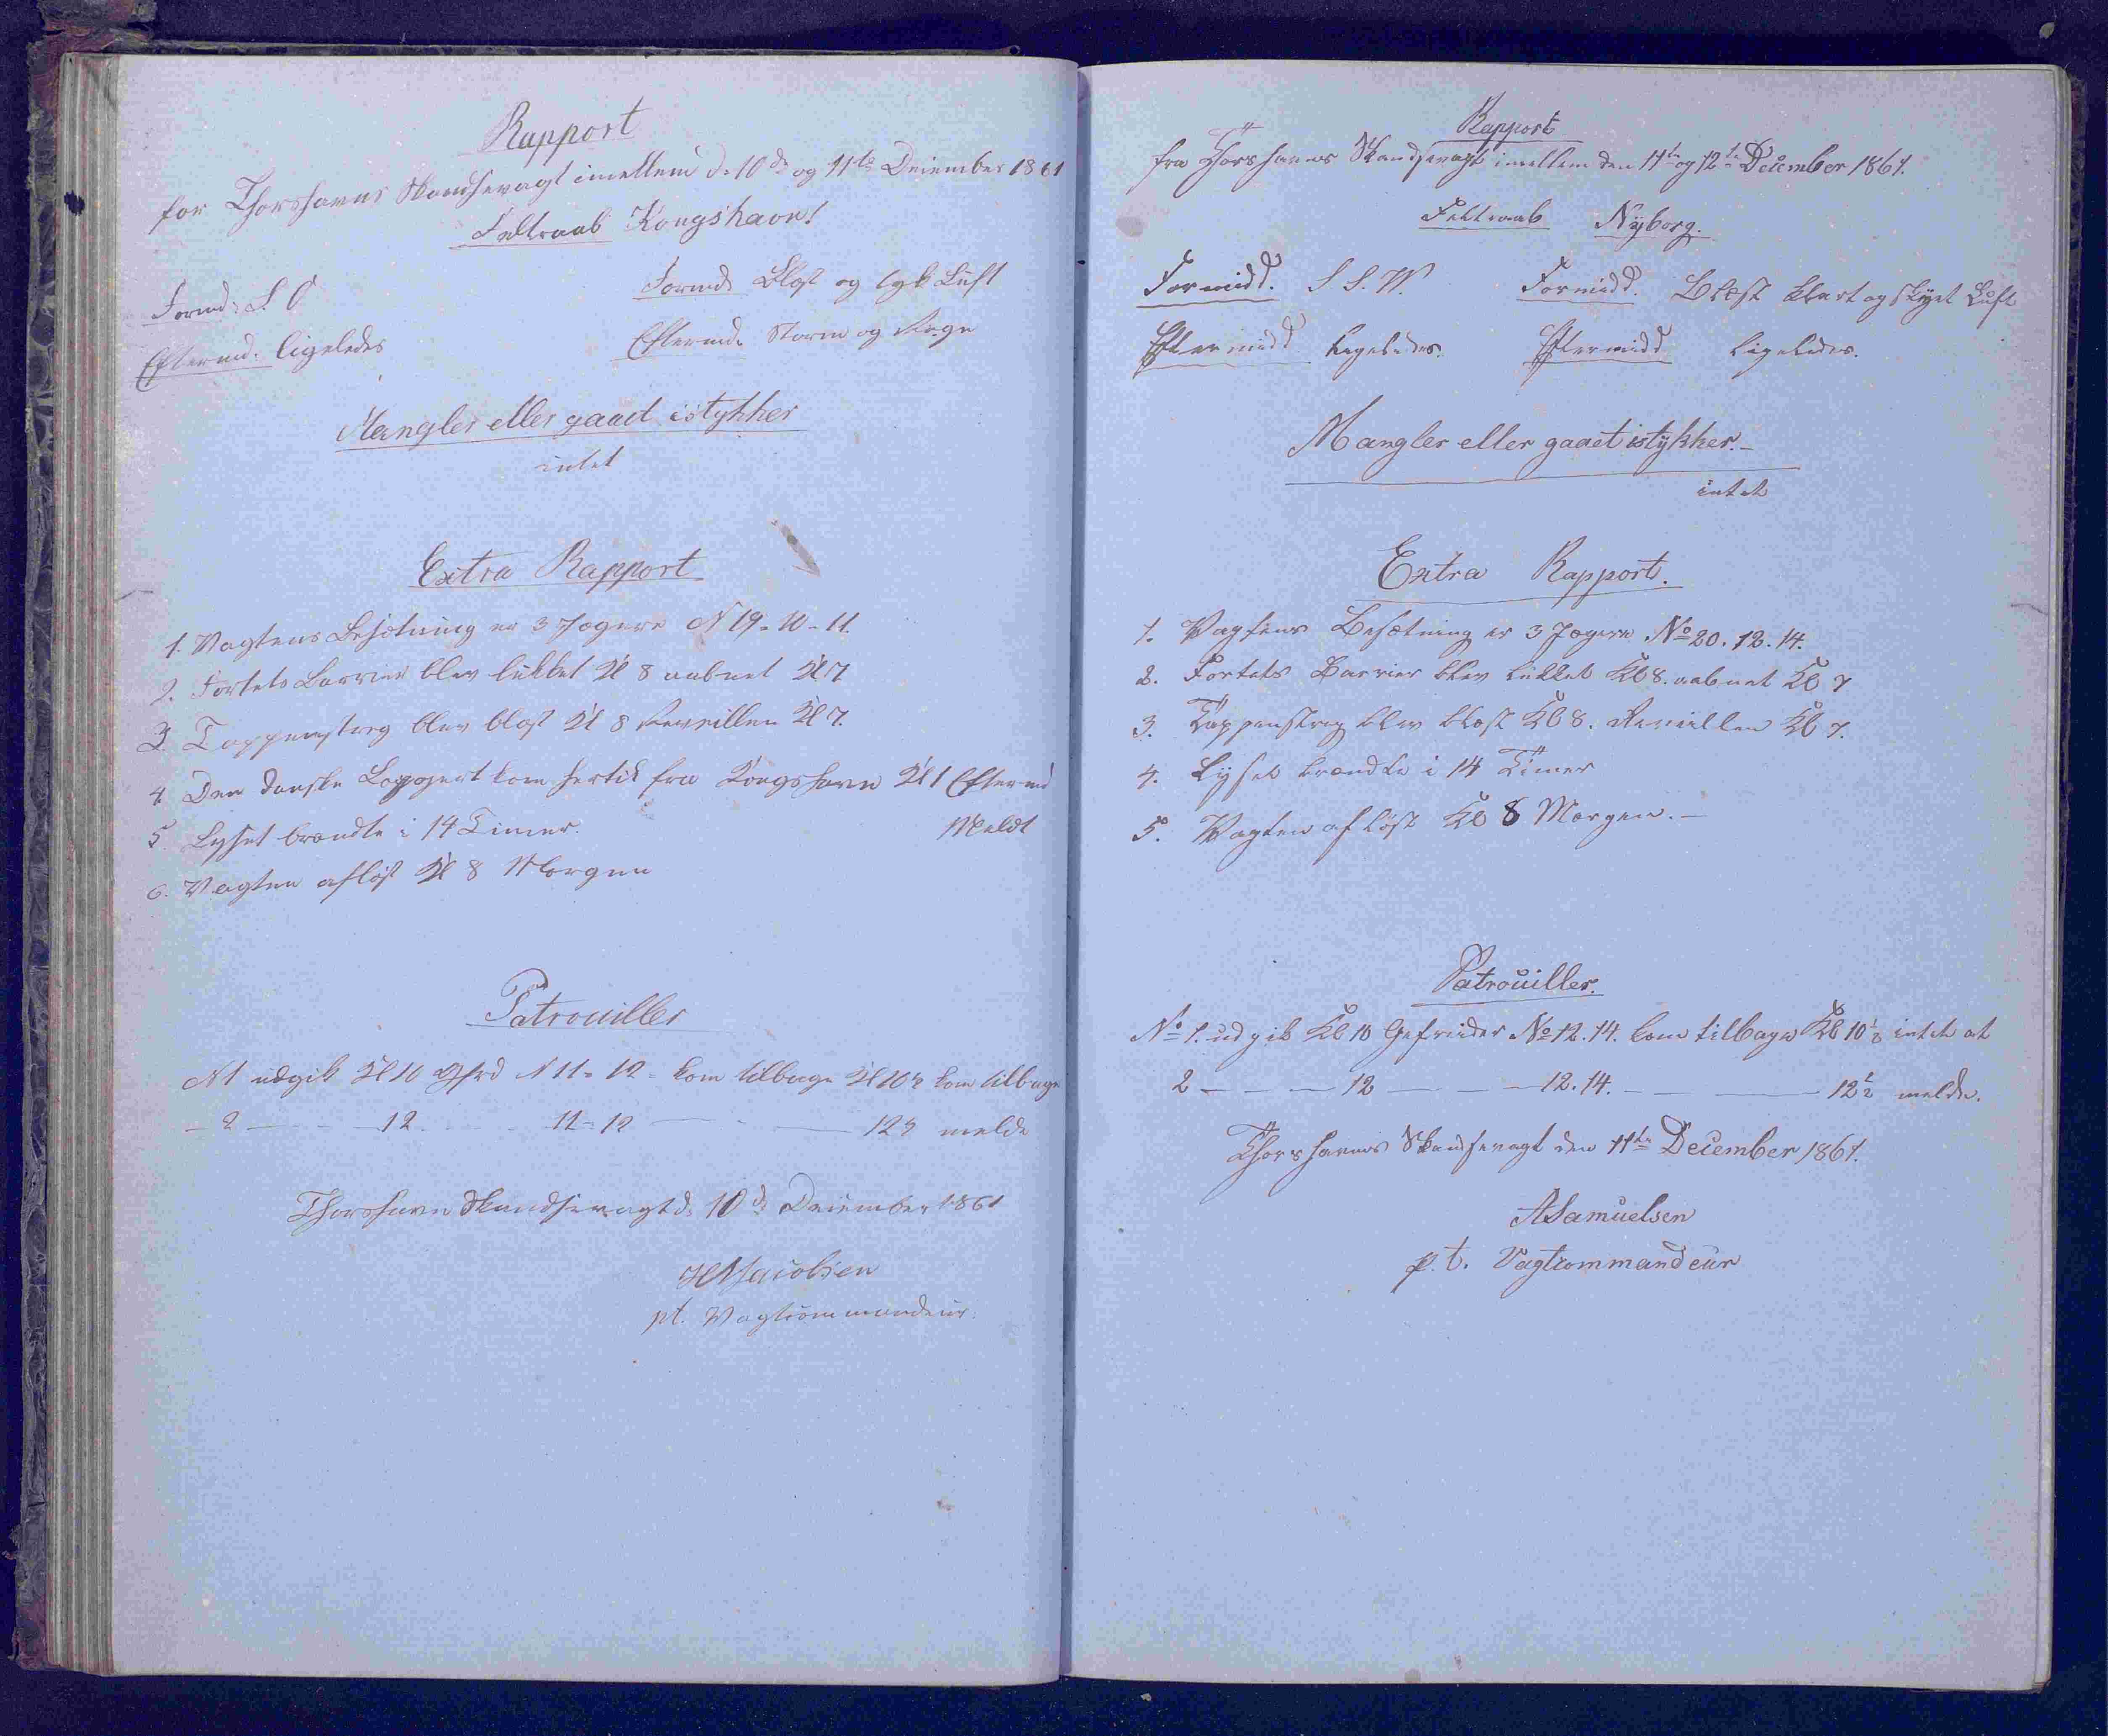 Rapport
for Thorshavns Skandsevagt imellem d. 10de og 11te December 1861
Feltraab Kongshavn!
Formd. S O Formd. Blæst og tyk Luft
Eftermd. ligeledes Eftermd. Storm og Regn
Mangler eller gaaet istykker
intet
Extra Rapport
1. Vagtens Besætning er 3 Jægere N 19-10-11.
2. Fortets Barriere blev lukket Kl 8 aabnet Kl 7
3. Tappenstreg blev blæst Kl 8 Reveillen Kl 7.
4. Den danske kom hertil fra Kongshavn Kl 1 Eftermd
5. Lyset brændte i 14 Timer. Meldt
6. Vagten afløst Kl 8 Morgen
Patrouiller
N 1 udgik Kl 10 Gfrd N 11-12- kom tilbage Kl 10½ kom tilbage
- 2 - 12 - 11-12 - 12½ melde
Thorshavn Skandsevagt d. 10de December 1861
HJacobsen
pt. Vagtcommandeur.
Rapport
fra Thorshavns Skandsevagt imellem den 11te og 12te December 1861.
Feltraab Nyborg.
Formidd. S. S. W. Formidd. Blæst klart og skyet Luft
Eftermidd ligeledes. Eftermidd ligeledes.
Mangler eller gaaet istykker.-
intet
Extra Rapport.
1. Vagtens Besætning er 3 Jægere No 20. 12. 14.
2. Fortets Barrier blev lukket Kl 8. aabnet Kl 7
3. Tappenstreg blev blæst Kl 8. Reveillen Kl 7.
4. Lyset brændte i 14 Timer
5. Vagten afløst Kl 8 Morgen.-
Patrouiller.
No 1. udgik Kl 10 Gefreider No 12. 14. kom tilbage Kl 10½ intet at
2 - - - 12 - - - 12. 14. - - - 12½ melde.
Thorshavns Skandsevagt den 11te December 1861.
ASamuelsen
p. t. Vagtcommandeur